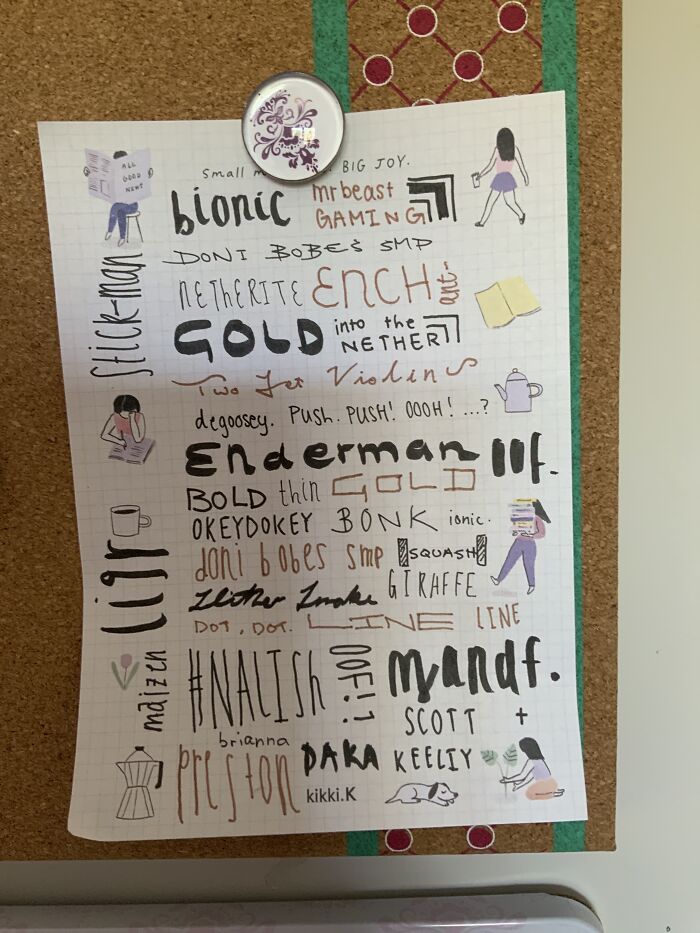 small BIG JOY.
ALL GOOD NEWS
bionic mrbeast GAMING
DONI BOBES SMP
NETHERITE ENCH ant
stick-man
GOLD into the NETHER
Two Set Violin
degoosey. PUSH. PUSH! OOOH! ...?
Enderman oof.
BOLD thin GOLD
OKEYDOKEY BONK ionic.
doni bobes smp SQUASH
GIRAFFE
Slither Snake
DOT, DOT. LINE LINE
#NALISh OOF!? mandf.
maizen
SCOTT +
brianna
preston DAKA KEELIY
kikki.K